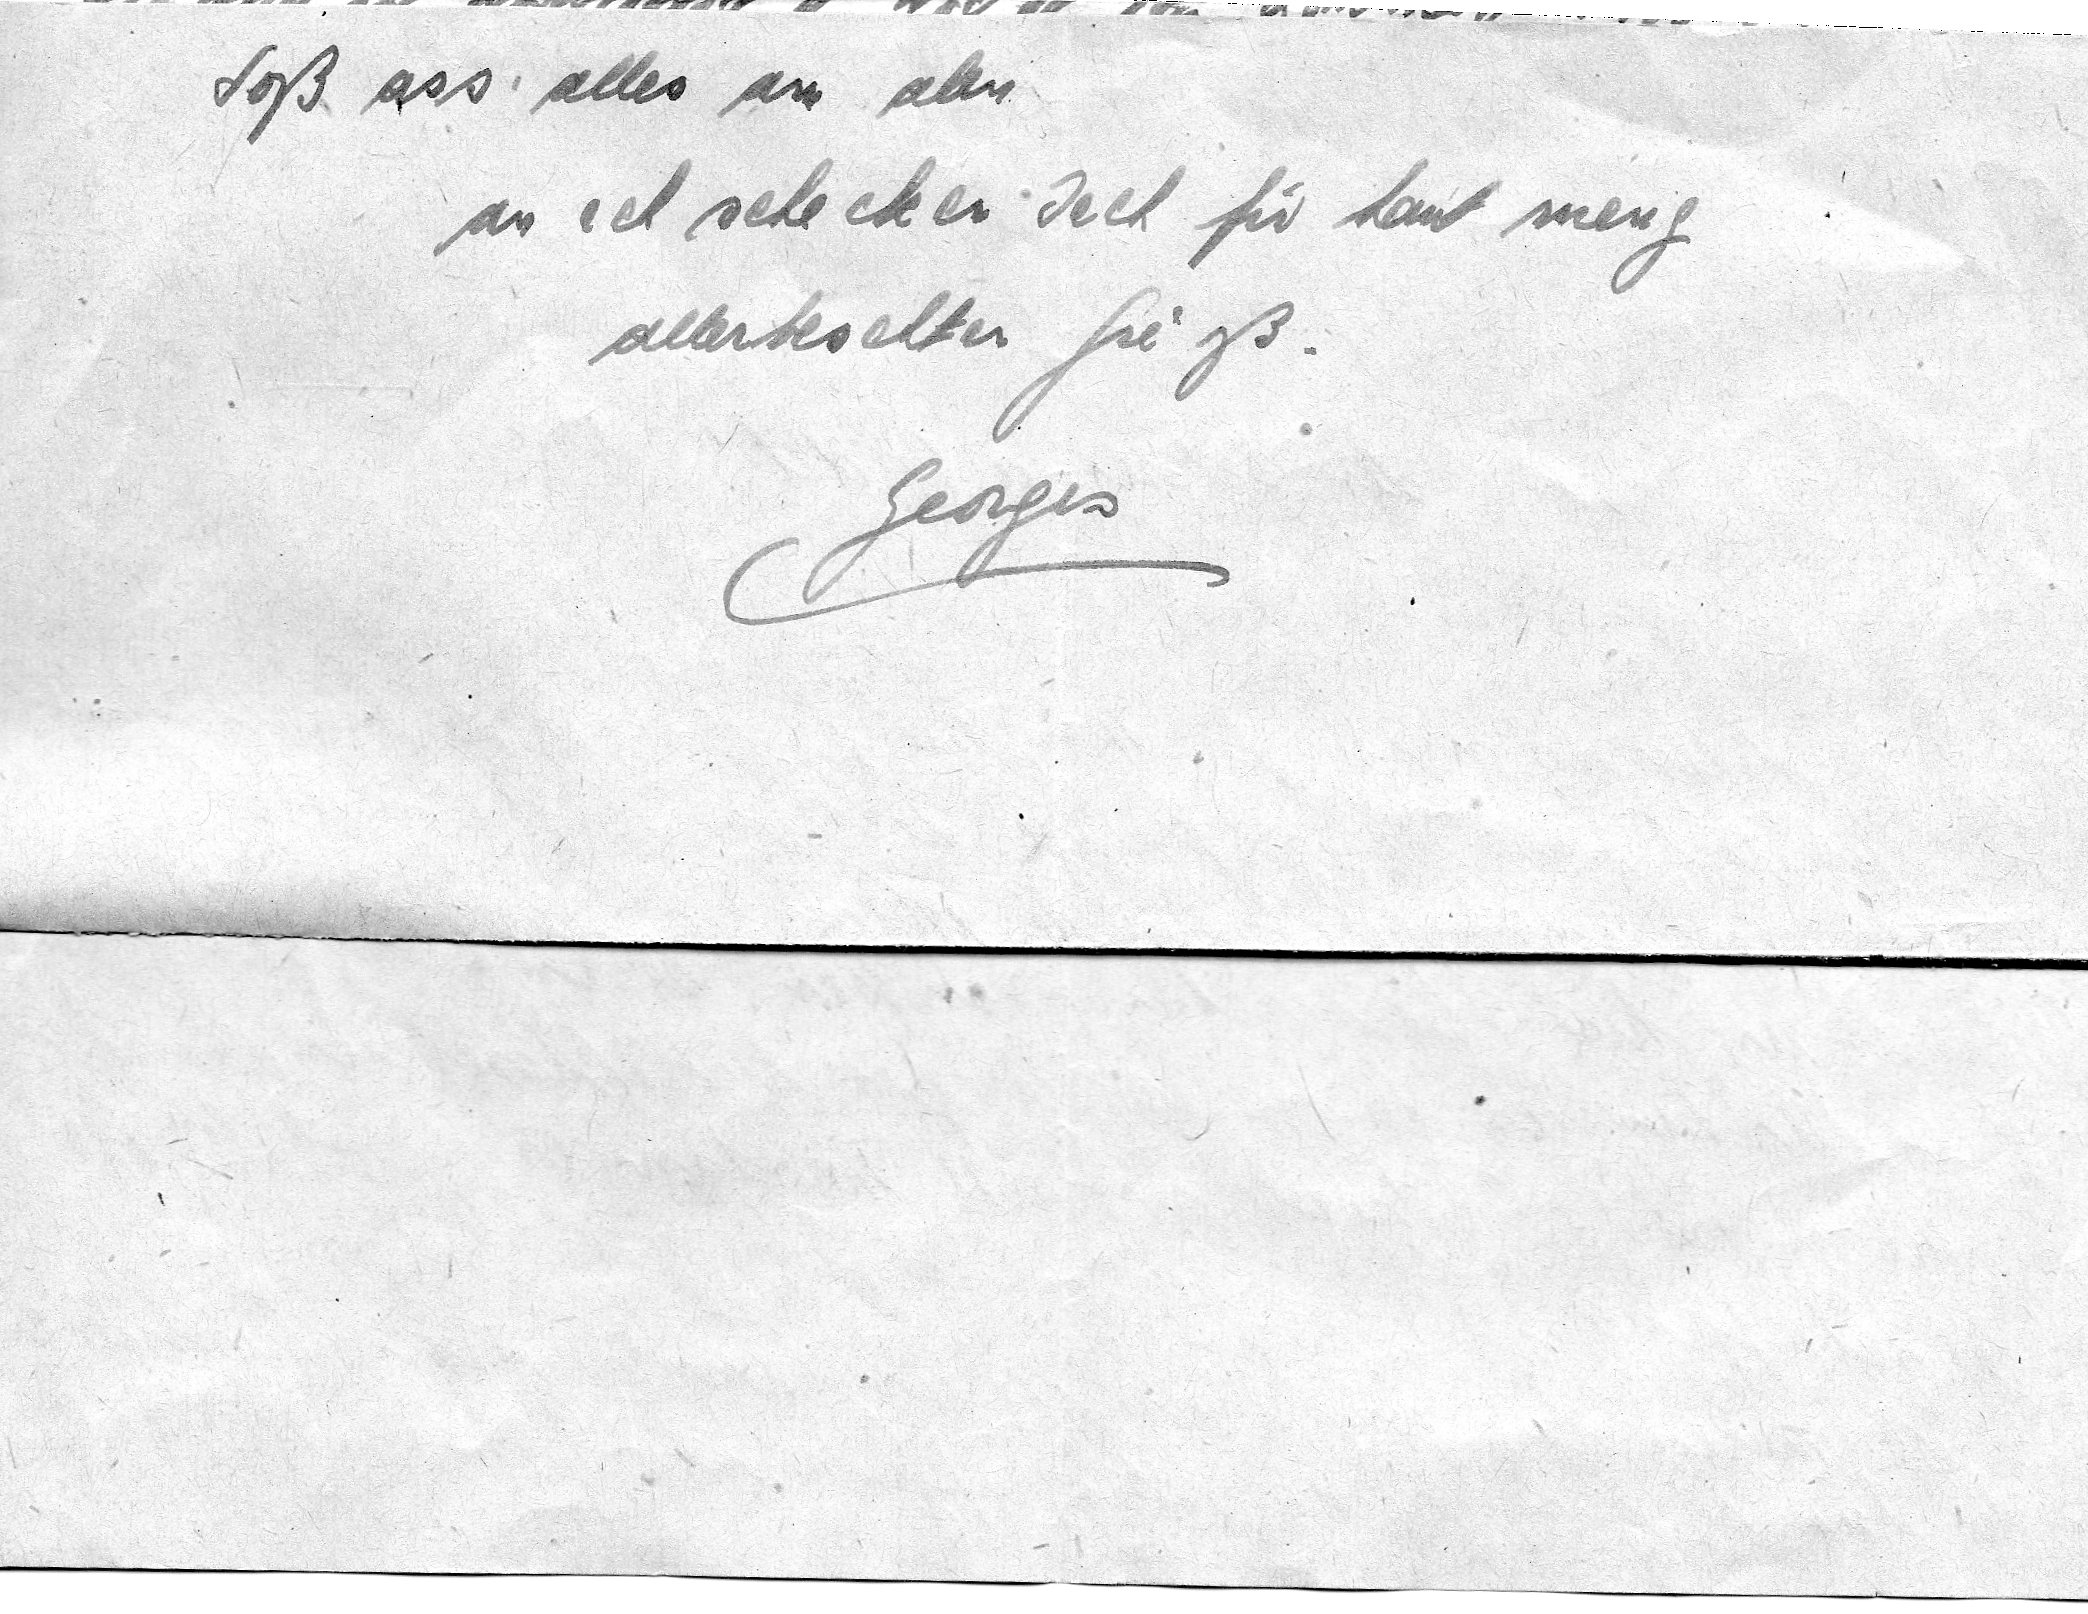 Soß ass alles am alen
an ech schecken Iech fir haut meng
allerbeschten Gréiß.
Georges